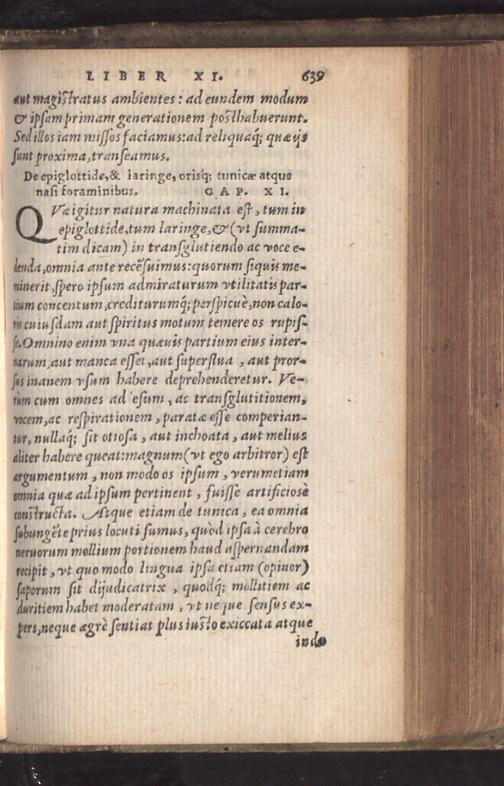 LIBER XI. 639
aut magiſtratus ambientes: ad eundem modum
& ipſam primam generationem poſthabuerunt.
Sed illos iam miſſos faciamus: ad reliquaq́; quæ ijs
ſunt proxima, tranſeamus.
De epiglottide, & laringe, orisq; tunicæ atque
naſi foraminibus. CAP. XI.
QVæ igitur natura machinata eſt, tum in
epiglottide, tum laringe, & (vt ſumma-
tim dicam) in tranſglutiendo ac voce e-
denda, omnia ante recẽſuimus: quorum ſiquis me-
minerit, ſpero ipſum admiraturum vtilitatis par-
tium concentum, crediturumq́; perſpicuè, non calo-
ris cuiuſdam aut ſpiritus motum temere os rupiſ-
ſe. Omnino enim vna quæuis partium eius inter-
narum, aut manca eſſet, aut ſuperflua, aut pror-
ſus inanem vſum habere deprehenderetur. Ve-
rùm cum omnes ad eſum, ac tranſglutitionem,
vocem, ac reſpirationem, paratæ eſſe comperian-
tur, nullaq́; ſit otioſa, aut inchoata, aut melius
aliter habere queat: magnum (vt ego arbitror) eſt
argumentum, non modo os ipſum, verumetiam
omnia quæ ad ipſum pertinent, fuiſſe artificioſè
conſtructa. Atque etiam de tunica, ea omnia
ſubungẽte prius locuti ſumus, quòd ipſa à cerebro
neruorum mollium portionem haud aſpernandam
recipit, vt quo modo lingua ipſa etiam (opinor)
ſaporum ſit dijudicatrix, quodq́; mollitiem ac
duritiem habet moderatam, vt neque ſenſus ex-
pers, neque ægrè ſentiat plus iuſto exiccata atque
indu